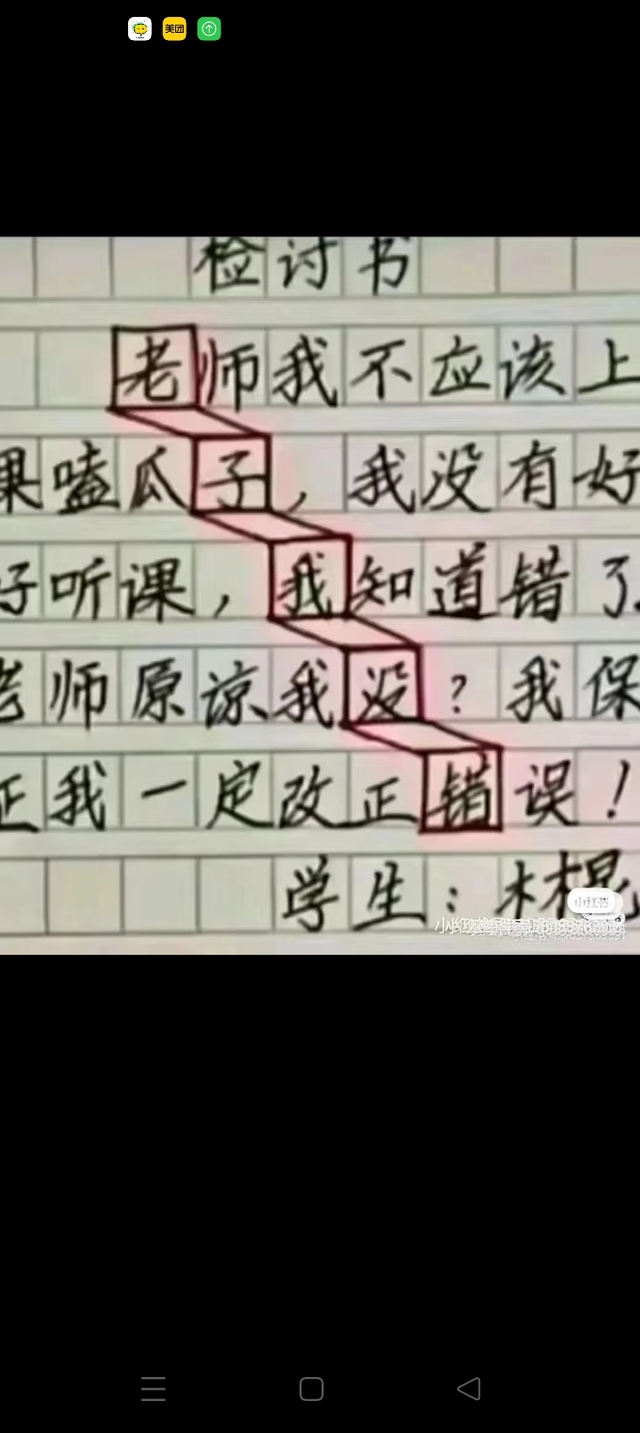 美团
检讨书
老师我不应该上
课嗑瓜子，我没有好
好听课，我知道错了
老师原谅我没？我保
正我一定改正错误！
学生：木棍
小红书